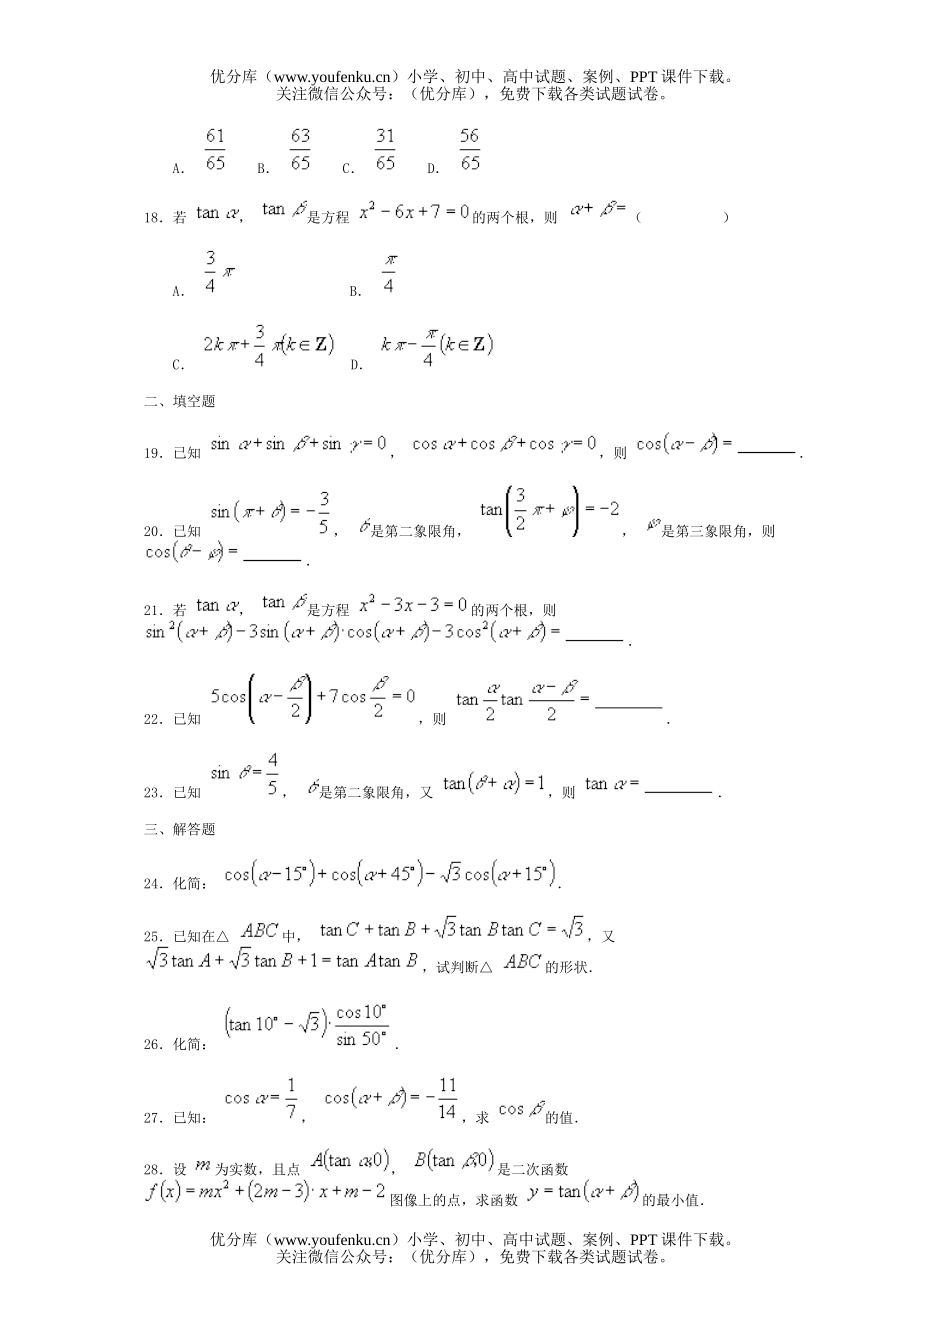 优分库（www.youfenku.cn）小学、初中、高中试题、案例、PPT 课件下载。
关注微信公众号：（优分库），免费下载各类试题试卷。
A. 61/65 B. 63/65 C. 31/65 D. 56/65
18．若 tan α， tan β是方程 x²－6x＋7＝0的两个根，则 α＋β＝（ ）
A. 3/4 π B. π/4
C. 2kπ＋3/4 π(k∈Z) D. kπ－π/4(k∈Z)
二、填空题
19．已知 sin α＋sin β＋sin γ＝0， cos α＋cos β＋cos γ＝0，则 cos(α－β)＝______．
20．已知 sin(π＋θ)＝－3/5， θ是第二象限角， tan(3/2 π＋φ)＝－2， φ是第三象限角，则
cos(θ－φ)＝______．
21．若 tan α， tan β是方程 x²－3x－3＝0的两个根，则
sin²(α＋β)－3sin(α＋β)·cos(α＋β)－3cos²(α＋β)＝______．
22．已知 5cos(α－β/2)＋7cos β/2＝0，则 tan α/2 tan (α－β)/2＝______．
23．已知 sin θ＝4/5， θ是第二象限角，又 tan(θ＋α)＝1，则 tan α＝______．
三、解答题
24．化简： cos(α－15°)＋cos(α＋45°)－√3cos(α＋15°)．
25．已知在△ ABC 中， tan C＋tan B＋√3tan B tan C＝√3，又
√3tan A＋√3tan B＋1＝tan A tan B，试判断△ ABC 的形状．
26．化简： (tan 10°－√3)·cos10°/sin 50°．
27．已知： cos α＝1/7， cos(α＋β)＝－11/14，求 cos β的值．
28．设 m 为实数，且点 A(tan α,0)， B(tan β,0)是二次函数
f(x)＝mx²＋(2m－3)·x＋m－2 图像上的点，求函数 y＝tan(α＋β)的最小值．
优分库（www.youfenku.cn）小学、初中、高中试题、案例、PPT 课件下载。
关注微信公众号：（优分库），免费下载各类试题试卷。